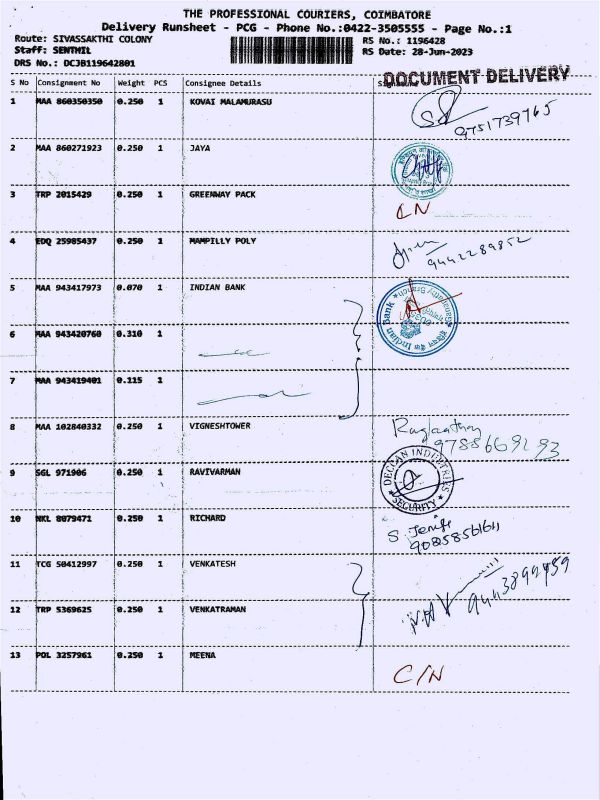 THE PROFESSIONAL COURIERS, COIMBATORE
Delivery Runsheet - PCG - Phone No.:0422-3505555 - Page No.:1
Route: SIVASSAKTHI COLONY
Staff: SENTMIL
DRS No.: DCJB119642801
RS No.: 1196428
RS Date: 28-Jun-2023
DOCUMENT DELIVERY
S No Consignment No Weight PCS Consignee Details Signature
1 MAA 860350350 0.250 1 KOVAI MALAMURASU
9751739765
2 MAA 860271923 0.250 1 JAYA
3 TRP 2015429 0.250 1 GREENWAY PACK
CN
4 EDQ 25985437 0.250 1 MAMPILLY POLY
9442289852
5 MAA 943417973 0.070 1 INDIAN BANK
Indian Bank
6 MAA 943420760 0.310 1
7 MAA 943419401 0.115 1
8 MAA 102840332 0.250 1 VIGNESHTOWER
9788669293
9 SGL 971906 0.250 1 RAVIVARMAN
DECCAN INDUSTRIES
SECURITY
10 NKL 8079471 0.250 1 RICHARD
S
11 TCG 50412997 0.250 1 VENKATESH
9443899459
12 TRP 5369625 0.250 1 VENKATRAMAN
13 POL 3257961 0.250 1 MEENA
C/N